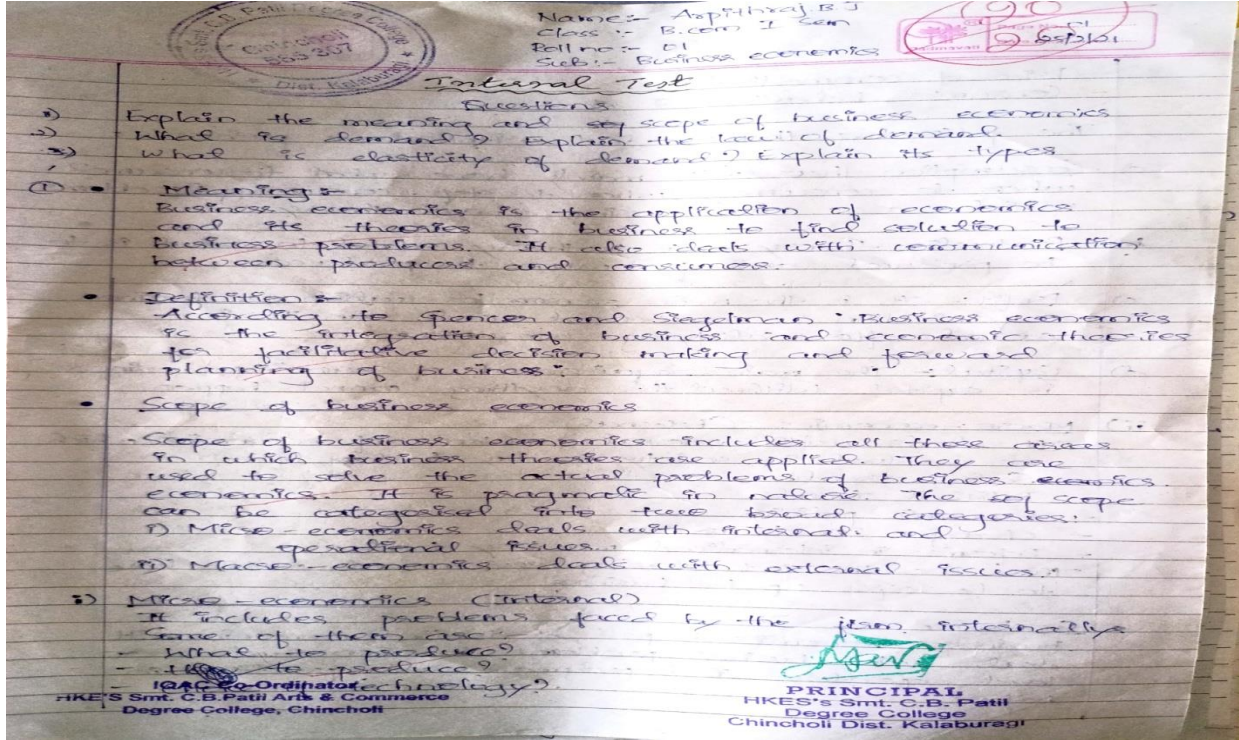 Name:- Arpithraj B J
Class :- B.com I Sem
Roll no :- 01
Sub:- Business economics
Smt C.B. Patil Degree College
Chincholi
585 307
Dist. Kalaburagi
Internal Test
Questions
1) Explain the meaning and scope of business economics
2) What is demand? Explain the law of demand.
3) What is elasticity of demand? Explain its types
① • Meaning :-
Business economics is the application of economics
and its theories in business to find solution to
business problems. It also deals with communication
between producers and consumers.
• Definition :-
According to Spencer and Siegelman "Business economics
is the integration of business and economic theories
for facilitative decision making and forward
planning of business".
• Scope of business economics
Scope of business economics includes all those areas
in which business theories are applied. They are
used to solve the actual problems of business
economics. It is pragmatic in nature. The scope
can be categorised into two broad categories:
i) Micro economics deals with internal and
operational issues.
ii) Macro-economics deals with external issues.
i) Micro-economics (Internal)
It includes problems faced by the firm internally
Some of them are
- What to produce?
- to produce?
technology?
IQAC Co-Ordinator
HKE'S Smt. C.B.Patil Arts & Commerce
Degree College, Chincholi
PRINCIPAL
HKES's Smt. C.B. Patil
Degree College
Chincholi Dist. Kalaburagi